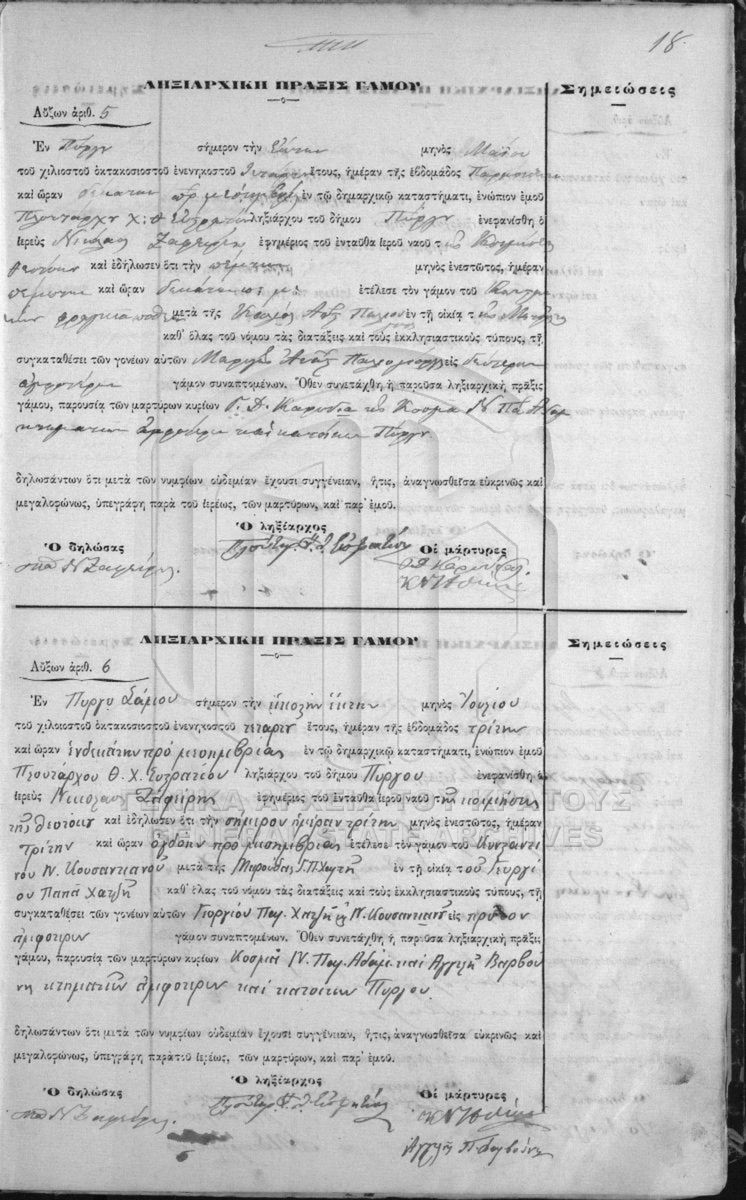 18.
ΛΗΞΙΑΡΧΙΚΗ ΠΡΑΞΙΣ ΓΑΜΟΥ
Σημειώσεις
Αὔξων ἀριθ. 5
Ἐν Πύργῳ σήμερον τὴν μηνὸς Μαΐου
τοῦ χιλιοστοῦ ὀκτακοσιοστοῦ ἐνενηκοστοῦ ἔτους, ἡμέραν τῆς ἑβδομάδος
καὶ ὥραν δεκάτην πρὸ μεσημβρίας ἐν τῷ δημαρχικῷ καταστήματι, ἐνώπιον ἐμοῦ
Πλουτάρχου Χ. Θ. Εὐστρατίου ληξιάρχου τοῦ δήμου Πύργου ἐνεφανίσθη ὁ
ἱερεὺς Νικόλαος Ζαφείρης ἐφημέριος τοῦ ἐνταῦθα ἱεροῦ ναοῦ τῆς Κοιμήσεως
Θεοτόκου καὶ ἐδήλωσεν ὅτι τὴν πέμπτην μηνὸς ἐνεστῶτος, ἡμέραν
πέμπτην καὶ ὥραν δεκάτην π. μ. ἐτέλεσε τὸν γάμον τοῦ
μετὰ τῆς ἐν τῇ οἰκίᾳ τ
καθ' ὅλας τοῦ νόμου τὰς διατάξεις καὶ τοὺς ἐκκλησιαστικοὺς τύπους, τῇ
συγκαταθέσει τῶν γονέων αὐτῶν εἰς δεύτερον
ἀμφοτέρων γάμον συναπτομένων. Ὅθεν συνετάχθη ἡ παροῦσα ληξιαρχικὴ πρᾶξις
γάμου, παρουσίᾳ τῶν μαρτύρων κυρίων Γ. Δ. Καρυδᾶ καὶ Κοσμᾶ Ν. Π. Ἀδάμ
κτηματιῶν ἀμφοτέρων καὶ κατοίκων Πύργου
δηλωσάντων ὅτι μετὰ τῶν νυμφίων οὐδεμίαν ἔχουσι συγγένειαν, ἥτις, ἀναγνωσθεῖσα εὐκρινῶς καὶ
μεγαλοφώνως, ὑπεγράφη παρὰ τοῦ ἱερέως, τῶν μαρτύρων, καὶ παρ' ἐμοῦ.
Ὁ ληξίαρχος
Ὁ δηλώσας
Οἱ μάρτυρες
παπᾶ Ν Ζαφείρης.
Πλούταρ. Χ. Θ. Εὐστρατίου
ΛΗΞΙΑΡΧΙΚΗ ΠΡΑΞΙΣ ΓΑΜΟΥ
Σημειώσεις
Αὔξων ἀριθ. 6
Ἐν Πύργῳ Σάμου σήμερον τὴν εἰκοστὴν ἕκτην μηνὸς Ἰουλίου
τοῦ χιλιοστοῦ ὀκτακοσιοστοῦ ἐνενηκοστοῦ τετάρτου ἔτους, ἡμέραν τῆς ἑβδομάδος τρίτην
καὶ ὥραν ἑνδεκάτην πρὸ μεσημβρίας ἐν τῷ δημαρχικῷ καταστήματι, ἐνώπιον ἐμοῦ
Πλουτάρχου Θ. Χ. Εὐστρατίου ληξιάρχου τοῦ δήμου Πύργου ἐνεφανίσθη ὁ
ἱερεὺς Νικόλαος Ζαφείρης ἐφημέριος τοῦ ἐνταῦθα ἱεροῦ ναοῦ τῆς κοιμήσεως
τῆς Θεοτόκου καὶ ἐδήλωσεν ὅτι τὴν σήμερον ἡμέραν τρίτην μηνὸς ἐνεστῶτος, ἡμέραν
τρίτην καὶ ὥραν ὀγδόην πρὸ μεσημβρίας ἐτέλεσε τὸν γάμον τοῦ Κωνσταντί
νου Ν. Κουσαντιανοῦ μετὰ τῆς Γ. Π. Χατζῆ ἐν τῇ οἰκίᾳ τοῦ Γεωργί
ου Παπᾶ Χατζῆ καθ' ὅλας τοῦ νόμου τὰς διατάξεις καὶ τοὺς ἐκκλησιαστικοὺς τύπους, τῇ
συγκαταθέσει τῶν γονέων αὐτῶν Γεωργίου Παπ. Χατζῆ καὶ Ν. Κουσαντιανοῦ εἰς πρῶτον
ἀμφοτέρων γάμον συναπτομένων. Ὅθεν συνετάχθη ἡ παροῦσα ληξιαρχικὴ πρᾶξις
γάμου, παρουσίᾳ τῶν μαρτύρων κυρίων Κοσμᾶ Ν. Παπ. Ἀδάμ καὶ Ἀγγελῆ Βαρβού
νη κτηματιῶν ἀμφοτέρων καὶ κατοίκων Πύργου.
δηλωσάντων ὅτι μετὰ τῶν νυμφίων οὐδεμίαν ἔχουσι συγγένειαν, ἥτις, ἀναγνωσθεῖσα εὐκρινῶς καὶ
μεγαλοφώνως, ὑπεγράφη παρὰ τοῦ ἱερέως, τῶν μαρτύρων, καὶ παρ' ἐμοῦ.
Ὁ ληξίαρχος
Ὁ δηλώσας
Οἱ μάρτυρες
παπᾶ Ν Ζαφείρης.
Πλούταρ. Χ. Θ. Εὐστρατίου
ΓΕΝΙΚΑ ΑΡΧΕΙΑ ΤΟΥ ΚΡΑΤΟΥΣ
GENERAL STATE ARCHIVES